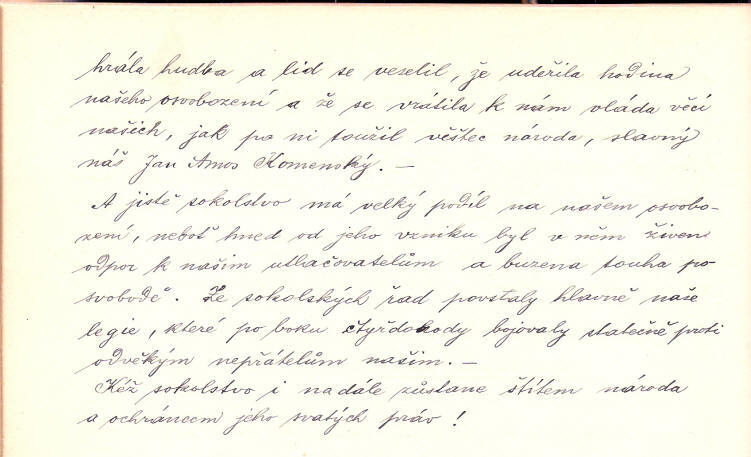 hrála hudba a lid se veselil, že udeřila hodina
našeho osvobození a že se vrátila k nám vláda věcí
našich, jak po ni toužil věštec národa, slavný
náš Jan Amos Komenský. —
A jistě sokolstvo má velký podíl na našem osvobo-
zení, neboť hned od jeho vzniku byl v něm živen
odpor k našim utlačovatelům a buzena touha po
svobodě. Ze sokolských řad povstaly hlavně naše
legie, které po boku čtyřdohody bojovaly statečně proti
odvěkým nepřátelům našim. —
Kéž sokolstvo i nadále zůstane štítem národa
a ochráncem jeho svatých práv !